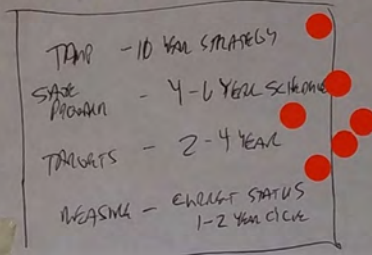 TAMP - 10 YEAR STRATEGY
STATE
PROGRAM - 4-6 YEAR SCHEDULE
TARGETS - 2-4 YEAR
MEASURE - CURRENT STATUS
1-2 YEAR CYCLE